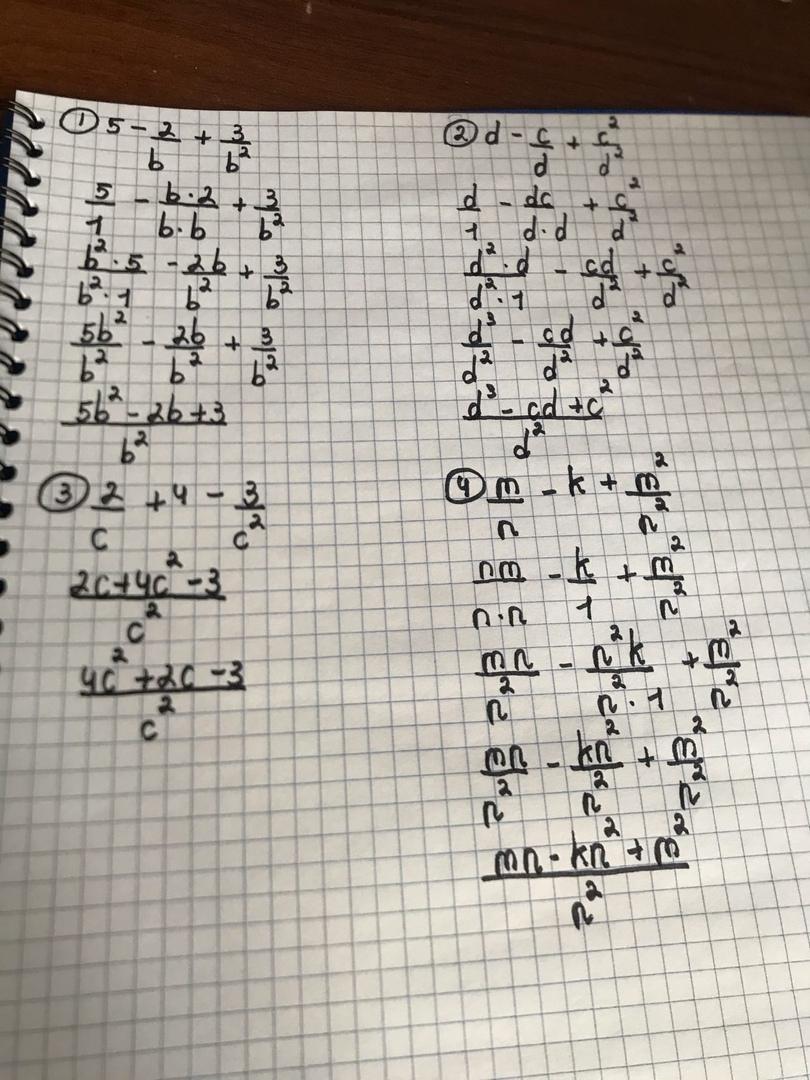 ① 5 - 2/b + 3/b²
5/1 - b·2/b·b + 3/b²
b²·5/b²·1 - 2b/b² + 3/b²
5b²/b² - 2b/b² + 3/b²
5b² - 2b + 3/b²
② d - c/d + c²/d²
d/1 - dc/d·d + c²/d²
d²·d/d²·1 - cd/d² + c²/d²
d³/d² - cd/d² + c²/d²
d³ - cd + c²/d²
③ 2/c + 4 - 3/c²
2c + 4c² - 3/c²
4c² + 2c - 3/c²
④ m/n - k + m²/n²
nm/n·n - k/1 + m²/n²
mn/n² - n²k/n²·1 + m²/n²
mn/n² - kn²/n² + m²/n²
mn - kn² + m²/n²